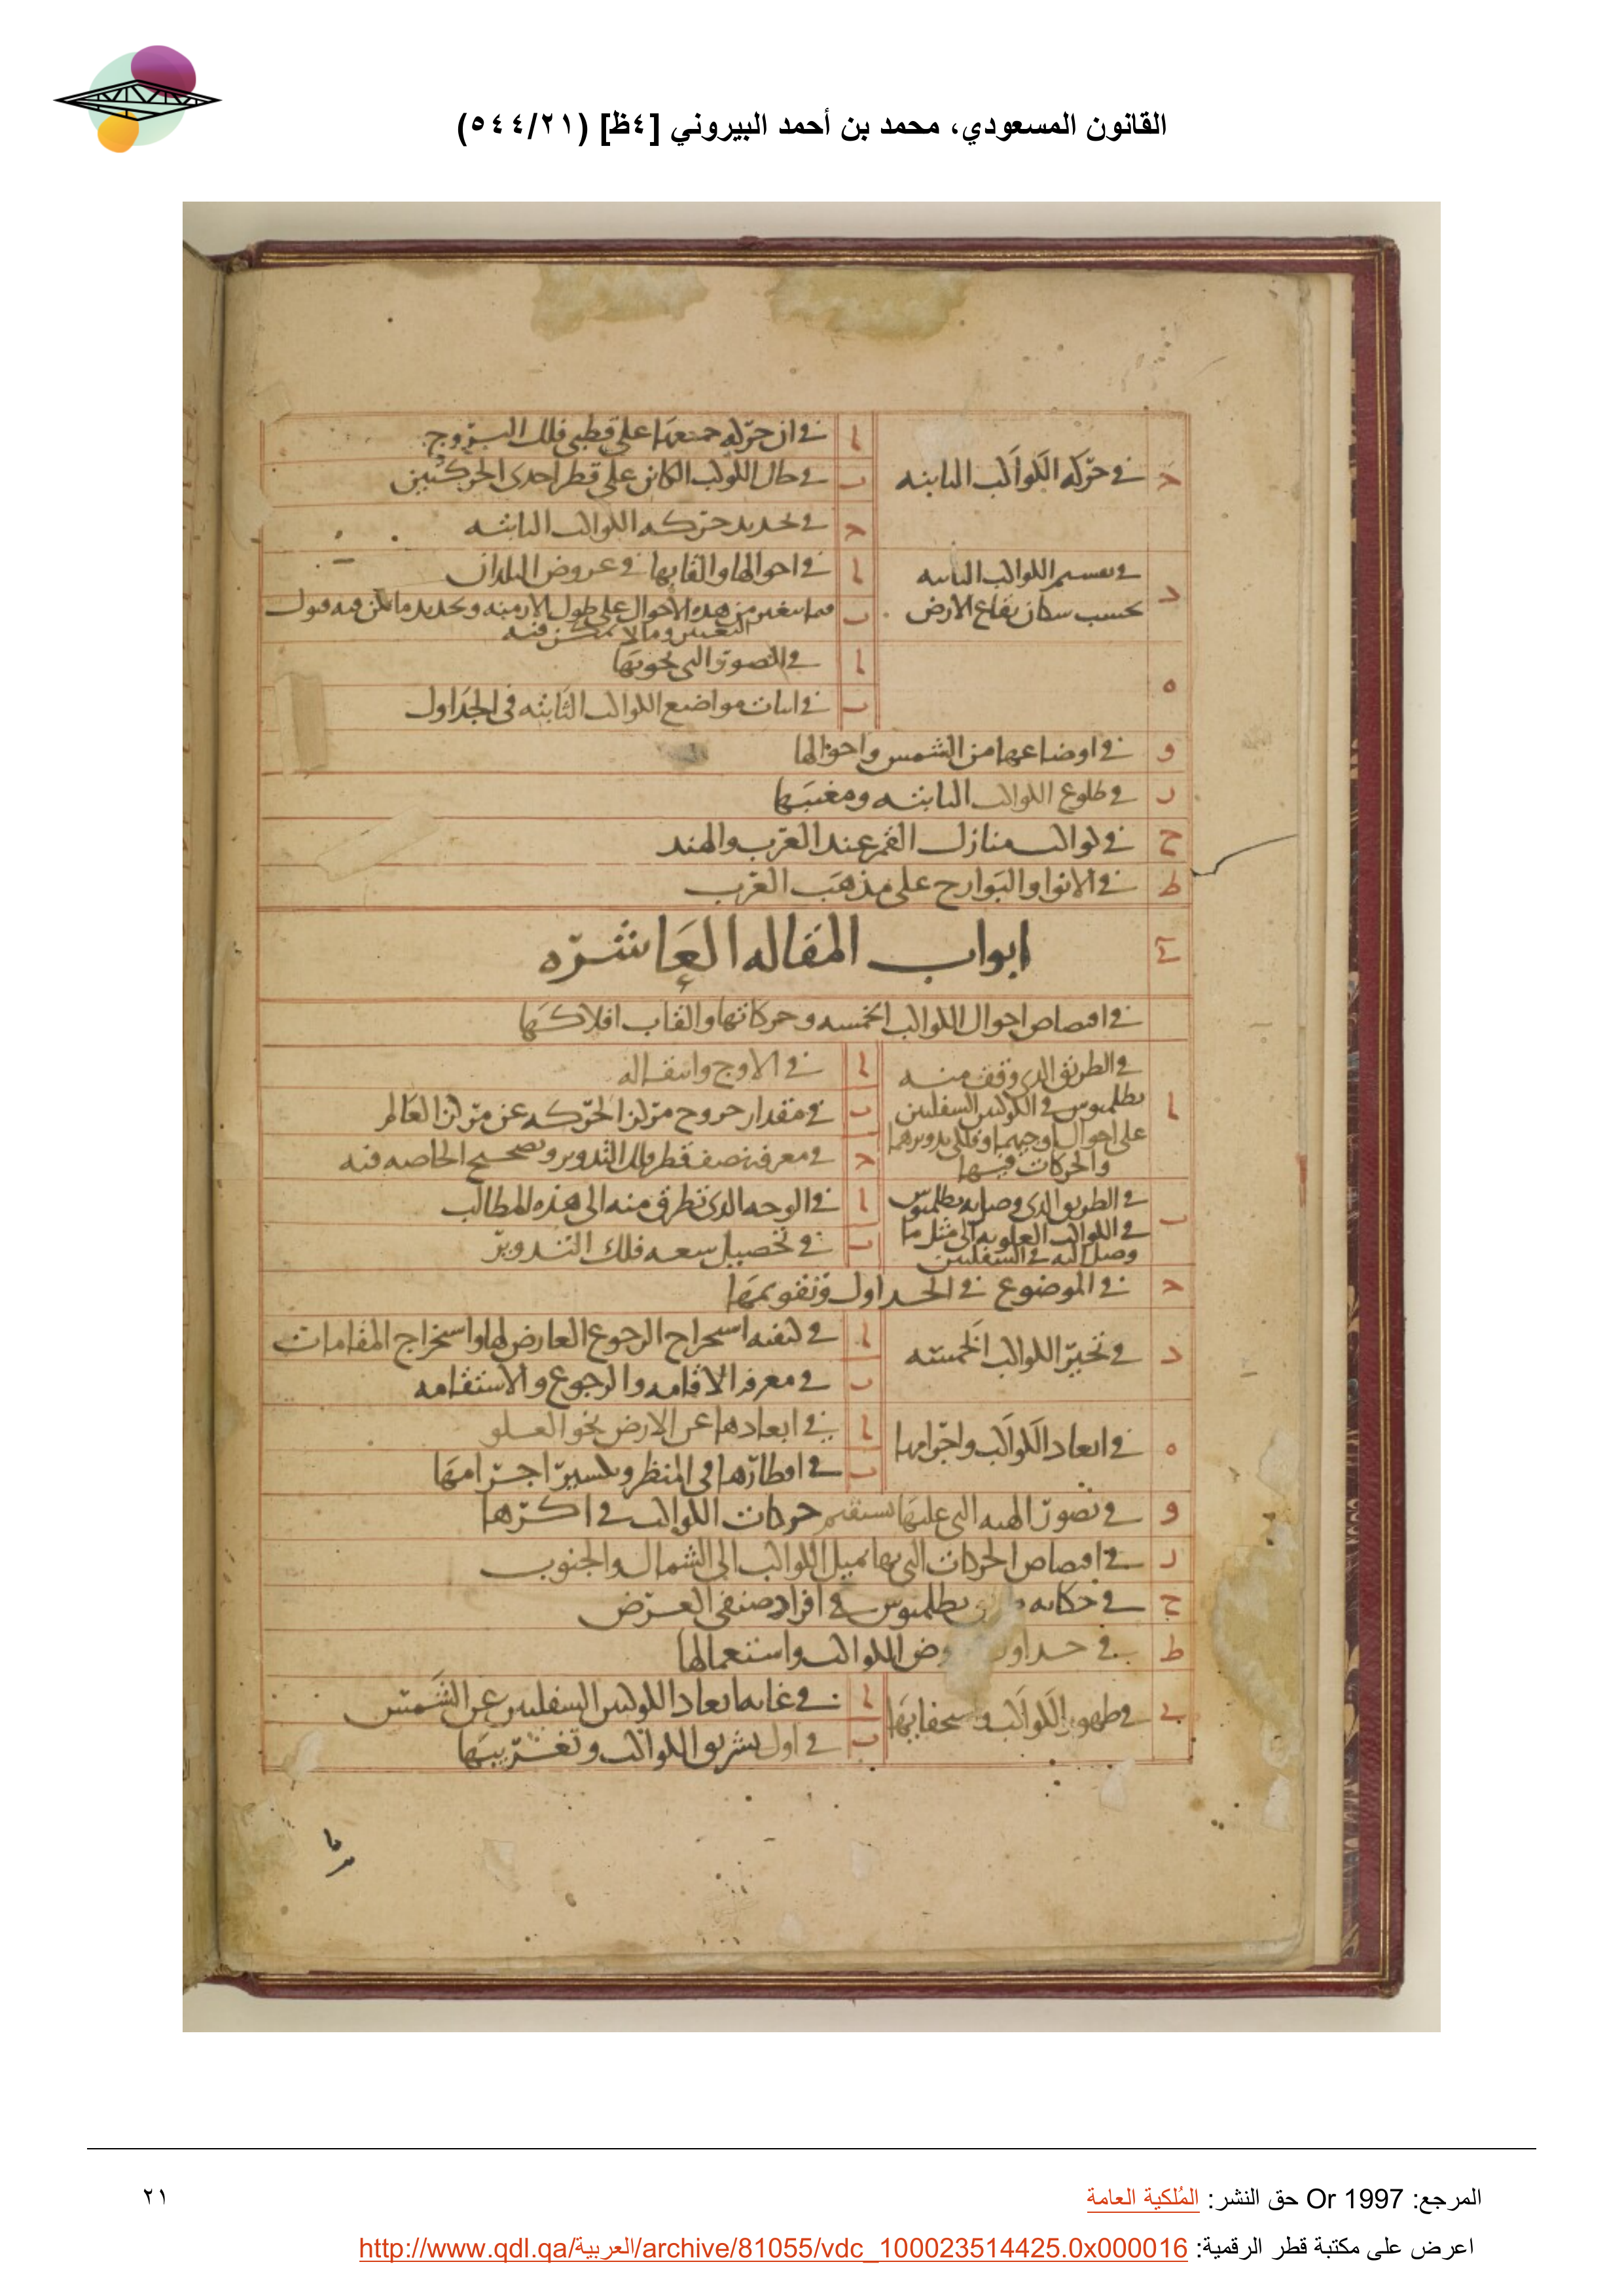 القانون المسعودي، محمد بن أحمد البيروني [٤ظ] (٥٤٤/٢١)
ج
في حركة الكواكب الثابته
ا
في ان حركة جميعها على قطبى فلك البروج
ب
في حال الكوكب الكائن على قطر احدى الحركتين
ج
في تحديد حركه الكواكب الثابته
د
في تقسيم الكواكب الثابته
بحسب سكان بقاع الارض
ا
في احوالها والقابها في عروض البلدان
ب
فيما يتغير من هذه الاحوال على طول الازمنه وتحديد ما يمكن فيه قبول
التغيير وما لا يمكن فيه
ه
ا
في الصور التي تحويها
ب
في اثبات مواضع الكواكب الثابته في الجداول
و
في اوضاعها من الشمس واحوالها
ز
في طلوع الكواكب الثابته ومغيبها
ح
في كواكب منازل القمر عند العرب والهند
ط
في الانوا والبوارح على مذهب العرب
ي
ابواب المقاله العاشره
في اقتصاص احوال الكواكب الخمسه وحركاتها والقاب افلاكها
ا
في الطريق الذي وقف منه
بطلميوس في الكوكبين السفليين
على احوال اوجيهما وفلكي تدويرهما
والحركات فيها
ا
في الاوج وانتقاله
ب
في مقدار خروج مركز الحركه عن مركز العالم
ج
في معرفة نصف قطر فلك التدوير وتصحيح الخاصه فيه
ب
في الطريق الذي وصل به بطلميوس
في الكواكب العلويه الى مثل ما
وصل اليه في السفليين
ا
في الوجه الذي تطرق منه الى هذه المطالب
ب
في تحصيل سعه فلك التدوير
ج
في الموضوع في الجداول وتقويمها
د
في تحير الكواكب الخمسه
ا
في كيفيه استخراج الرجوع العارض لها واستخراج المقامات
ب
في معرفة الاقامه والرجوع والاستقامه
ه
في ابعاد الكواكب واجرامها
ا
في ابعادها عن الارض نحو العلو
ب
في اقطارها في المنظر وتكسير اجرامها
و
في تصور الهيه التي عليها تستقيم حركات الكواكب في اكرها
ز
في اقتصاص الحركات التي بها تميل الكواكب الى الشمال والجنوب
ح
في حكايه بطلميوس في افراد صنفي العرض
ط
في جداول عروض الكواكب واستعمالها
ي
في ظهور الكواكب واستخفايها
ا
في غايه ابعاد الكوكبين السفليين عن الشمس
ب
في اول تشريق الكواكب وتغريبها
المرجع: Or 1997 حق النشر: المُلكية العامة
٢١
اعرض على مكتبة قطر الرقمية: http://www.qdl.qa/العربية/archive/81055/vdc_100023514425.0x000016